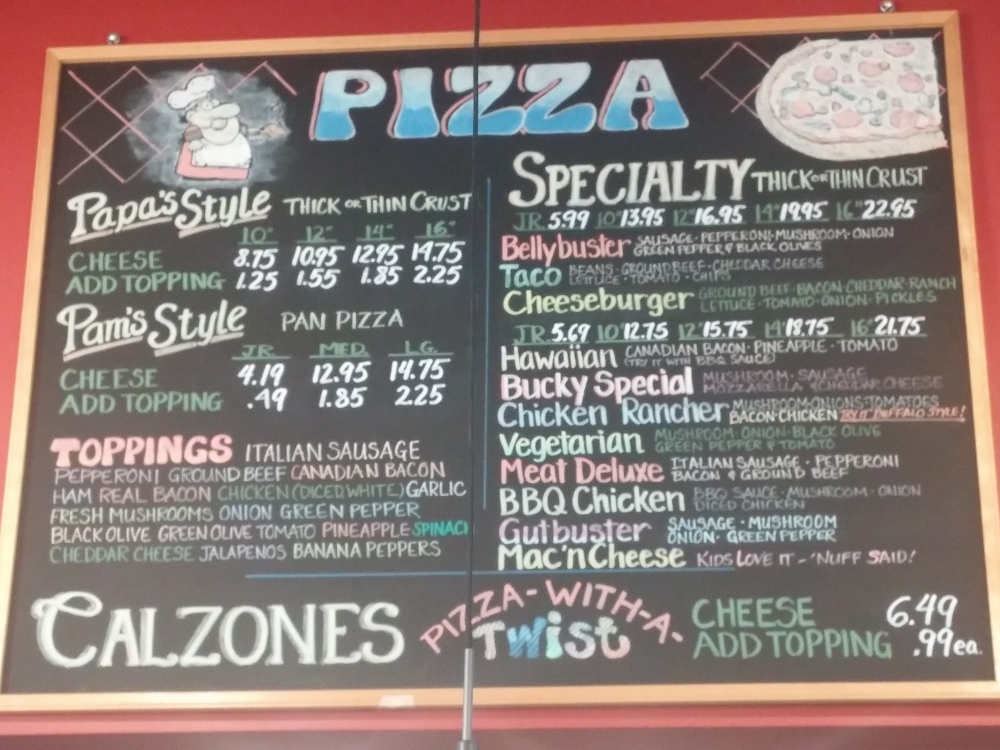 PIZZA
Papa's Style THICK OR THIN CRUST
10" 12" 14" 16"
CHEESE 8.75 10.95 12.95 14.75
ADD TOPPING 1.25 1.55 1.85 2.25
Pam's Style PAN PIZZA
JR. MED. LG.
CHEESE 4.19 12.95 14.75
ADD TOPPING .49 1.85 2.25
TOPPINGS ITALIAN SAUSAGE
PEPPERONI GROUND BEEF CANADIAN BACON
HAM REAL BACON CHICKEN (DICED WHITE) GARLIC
FRESH MUSHROOMS ONION GREEN PEPPER
BLACK OLIVE GREEN OLIVE TOMATO PINEAPPLE SPINACH
CHEDDAR CHEESE JALAPENOS BANANA PEPPERS
SPECIALTY THICK OR THIN CRUST
JR. 5.99 10" 13.95 12" 16.95 14" 19.95 16" 22.95
Bellybuster SAUSAGE · PEPPERONI · MUSHROOM · ONION
GREEN PEPPER & BLACK OLIVES
Taco BEANS · GROUND BEEF · CHEDDAR CHEESE
LETTUCE · TOMATO · CHIPS
Cheeseburger GROUND BEEF · BACON · CHEDDAR · RANCH
LETTUCE · TOMATO · ONION · PICKLES
JR. 5.69 10" 12.75 12" 15.75 14" 18.75 16" 21.75
Hawaiian CANADIAN BACON · PINEAPPLE · TOMATO
(TRY IT WITH BBQ SAUCE)
Bucky Special MUSHROOM · SAUSAGE
MOZZARELLA & CHEDDAR CHEESE
Chicken Rancher MUSHROOM · ONIONS · TOMATOES
BACON · CHICKEN TRY IT BUFFALO STYLE!
Vegetarian MUSHROOM · ONION · BLACK OLIVE
GREEN PEPPER & TOMATO
Meat Deluxe ITALIAN SAUSAGE · PEPPERONI
BACON & GROUND BEEF
BBQ Chicken BBQ SAUCE · MUSHROOM · ONION
DICED CHICKEN
Gutbuster SAUSAGE · MUSHROOM
ONION · GREEN PEPPER
Mac'n Cheese KIDS LOVE IT - 'NUFF SAID!
CALZONES
PIZZA-WITH-A-
TWIST
CHEESE 6.49
ADD TOPPING .99 ea.